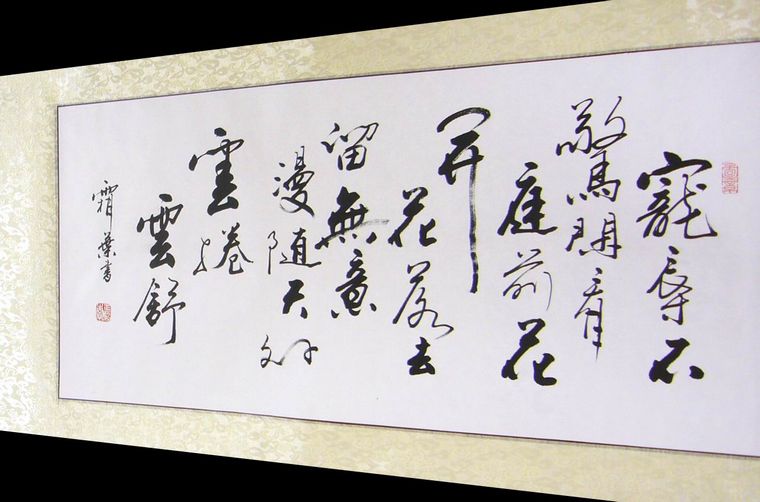 寵辱不
驚閒看
庭前花
開
花落去
留無意
漫隨天外
雲捲
雲舒
霜葉書